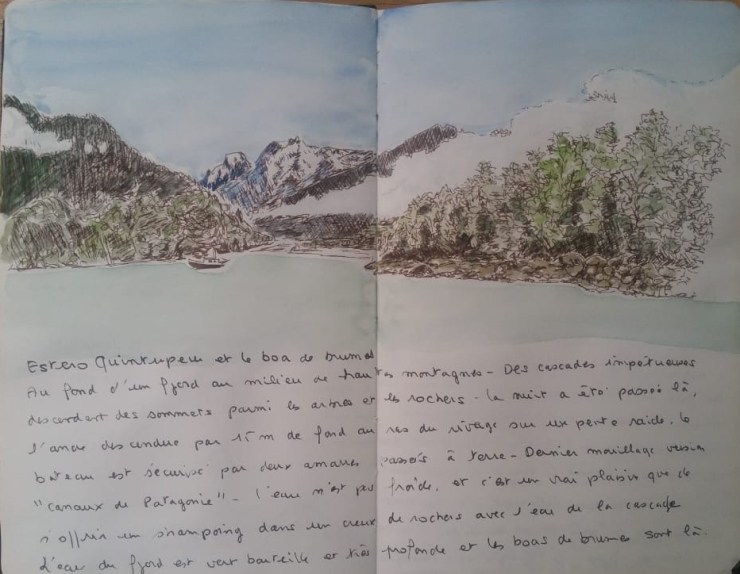 Estero Quintupeu et le boa de brumes
Au fond d'un fjord au milieu de hautes montagnes - Des cascades impétueuses
descendant des sommets parmi les arbres et les rochers - la nuit a été passée là,
l'ancre descendue par 15 m de fond au ras du rivage sur une pente raide. le
bateau est sécurisé par deux amarres passées à terre - Dernier mouillage version
"canaux de Patagonie" - l'eau n'est pas froide, et c'est un vrai plaisir que de
s'offrir un shampoing dans un creux de rochers avec l'eau de la cascade
L'eau du fjord est vert bouteille et très profonde et les boas de brumes sont là.